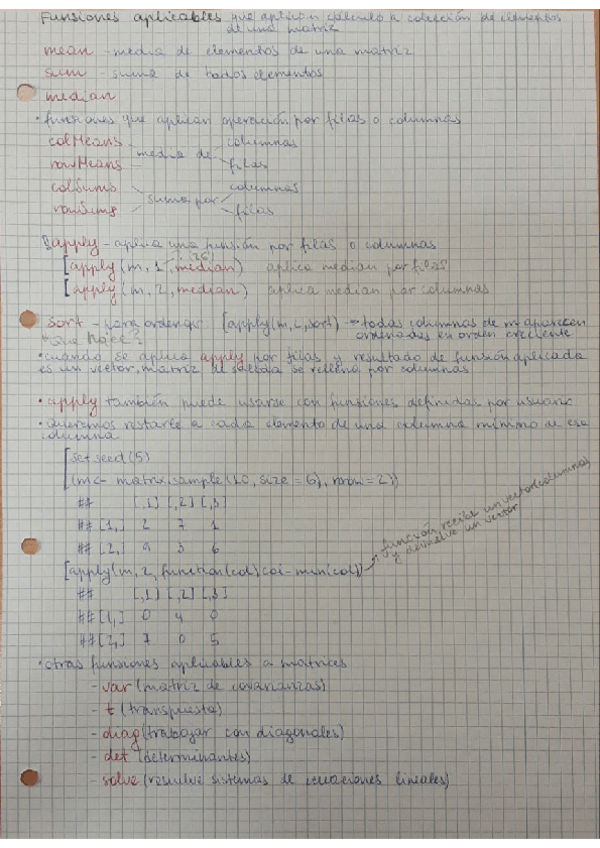 Funsiones aplicables que aplican cálculo a colección de elementos
de una matriz
mean - media de elementos de una matriz
sum - suma de todos elementos
median
• funsiones que aplican operación por filas o columnas
colMeans columnas
media de
rowMeans filas
colSums columnas
suma por
rowSums filas
apply - aplica una funsión por filas o columnas
[apply(m, 1, median) aplica median por filas
[apply(m, 2, median) aplica median por columnas
sort - para ordenar [apply(m, 2, sort) → todas columnas de m aparecen
ordenadas en orden creciente
• cuando se aplica apply por filas y resultado de función aplicada
es un vector, matriz de salida se rellena por columnas
• apply también puede usarse con funsiones definidas por usuario
• queremos restarle a cada elemento de una columna mínimo de esa
columna
[set.seed(5)
(m <- matrix(sample(10, size = 6), nrow = 2))
## [,1] [,2] [,3]
## [1,] 2 7 1
## [2,] 9 3 6
función recibe un vector(columna)
y devuelve un vector
[apply(m, 2, function(col) col - min(col))
## [,1] [,2] [,3]
## [1,] 0 4 0
## [2,] 7 0 5
• otras funsiones aplicables a matrices
- var (matriz de covarianzas)
- t (transpuesta)
- diag (trabajar con diagonales)
- det (determinantes)
- solve (resuelve sistemas de ecuaciones lineales)